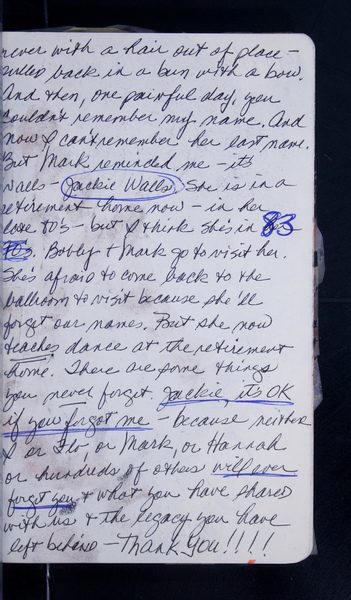 never with a hair out of place -
pulled back in a bun with a bow.
And then, one painful day, you
couldn't remember my name. And
now I can't remember her last name.
But Mark reminded me - it's
Walls - Jackie Walls. She is in a
retirement home now - in her
late 70's - but I think she's in her 83
70's. Bobby + Mark go to visit her.
She's afraid to come back to the
ballroom to visit because she'll
forget our names. But she now
teaches dance at the retirement
home. There are some things
you never forget. Jackie, it's OK
if you forgot me - because neither
I or Flo, or Mark, or Hannah
or hundreds of others will ever
forget you & what you have shared
with us & the legacy you have
left behind - Thank You!!!!